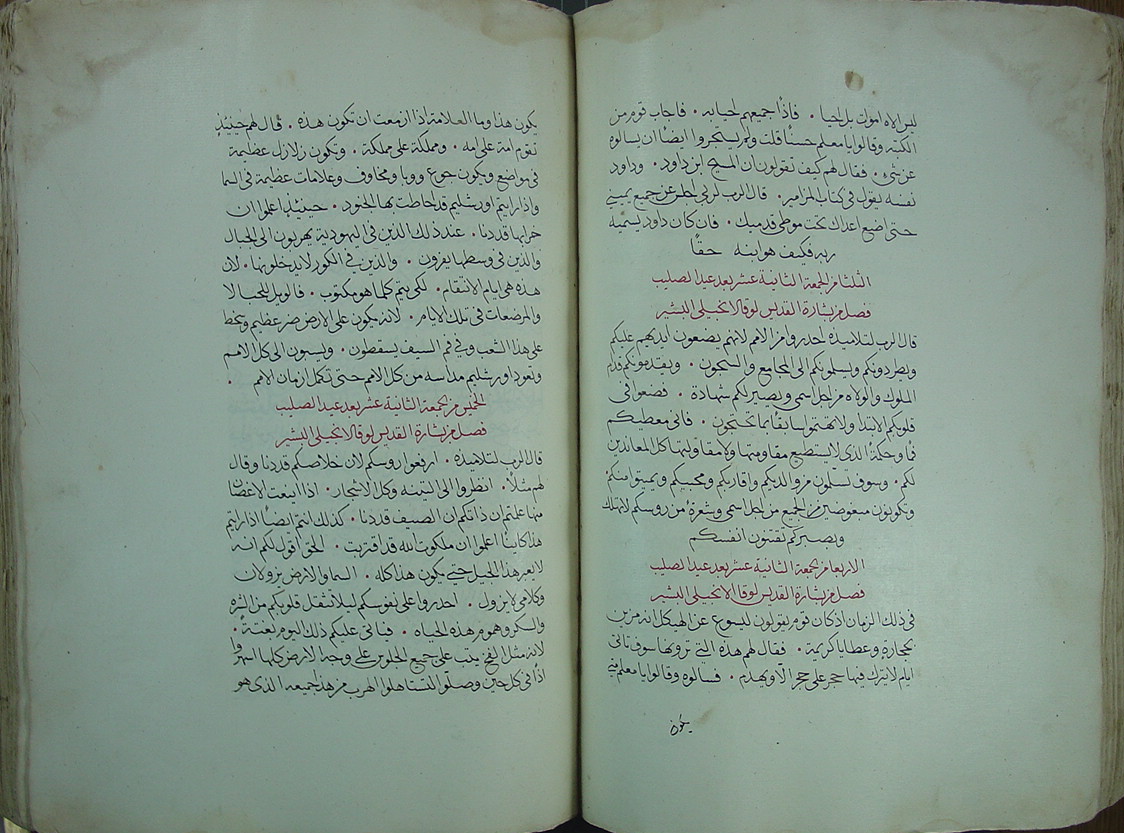 ليس الاه اموات بل احيا . فاذًا جميعهم احيا به . فاجاب قوم من
الكتبه وقالوا يا معلم حسنًا قلت ولم يستجروا ايضًا ان يسالوه
عن شيء . فقال لهم كيف تقولون ان المسيح ابن داود . وداود
نفسه يقول في كتاب المزامير . قال الرب لربي اجلس عن جميع يميني
حتى اضع اعداك تحت موطى قدميك . فان كان داود يسميه
ربه فكيف هو ابنه حقًا
الثلثا من الجمعة الثانية عشر بعد عيد الصليب
فصل من بشارة القديس لوقا الانجيلي البشير
قال الرب لتلاميذه احدروا من الامم لانهم يضعون ايديهم عليكم
ويطردونكم ويسلمونكم الى المجامع والسجون . ويقدمونكم قدام
الملوك والولاه من اجل اسمي ويصير لكم شهادة . فضعوا في
قلوبكم الابتدا ولا تهتموا سابقًا بما تحتجون . فاني معطيكم
فمًا وحكمة الذي لا يستطيع مقاومتها ولا مقاوليتها كل المعاندين
لكم . وسوف تسلمون من والديكم واقاربكم ومحبيكم ويميتوا منكم
وتكونون مبغوضين من الجميع من اجل اسمي وشعرة من روسكم لا تهلك
وبصبركم تقتنون انفسكم
الاربعا من الجمعة الثانية عشر بعد عيد الصليب
فصل من بشارة القديس لوقا الانجيلي البشير
في ذلك الزمان اذ كان قوم يقولون ليسوع عن الهيكل انه مزين
بحجارة وعطايا كريمة . فقال لهم هذه التي ترونها سوف تاتي
ايام لا يترك فيها حجر على حجر الا ويهدم . فسالوه وقالوا يا معلم متى
يكون
يكون هذا وما العلامة اذا ازمعت ان تكون هذه . قال لهم حينيذ
تقوم امة على امه . ومملكة على مملكة . وتكون زلازل عظيمة
في مواضع ويكون جوع ووبا ومخاوف وعلامات عظيمة في السما
واذا رايتم اورشليم قد احاطت بها الجنود . حينيذ اعلموا ان
خرابها قد دنا . عند ذلك الذين في اليهودية يهربون الى الجبال
والذين في وسطها يفرون . والذين في الكور لا يدخلونها . لان
هذه هي ايام الانتقام . لكي يتم كلما هو مكتوب . فالويل للحبالا
والمرضعات في تلك الايام . لانه يكون على الارض ضر عظيم وسخط
على هذا الشعب وفي فم السيف يسقطون . ويسبون الى كل الامم
وتعود اورشليم مداسه من كل الامم حتى تكمل ازمان الامم .
الخميس من الجمعة الثانية عشر بعد عيد الصليب
فصل من بشارة القديس لوقا الانجيلي البشير
قال الرب لتلاميذه . ارفعوا روسكم لان خلاصكم قد دنا وقال
لهم مثلًا . انظروا الى التينه وكل الاشجار . اذا اينعت الاغصان
منها علمتم ان ذاتكم ان الصيف قد دنا . كذلك انتم ايضًا اذا رايتم
هذا كاينًا اعلموا ان ملكوت الله قد اقتربت . الحق اقول لكم انه
لا يعبر هذا الجيل حتى يكون هذا كله . السما والارض يزولان
وكلامي لا يزول . احدروا على نفوسكم ليلا تثقل قلوبكم من الشره
والسكر وهموم هذه الحياه . فياتي عليكم ذلك اليوم بغتةً .
لانه مثل الفخ يثب على جميع الجلوس على وجه الارض كلها اسهروا
اذًا في كل حين وصلوا لتستاهلوا الهرب من هذا جميعه الذي هو